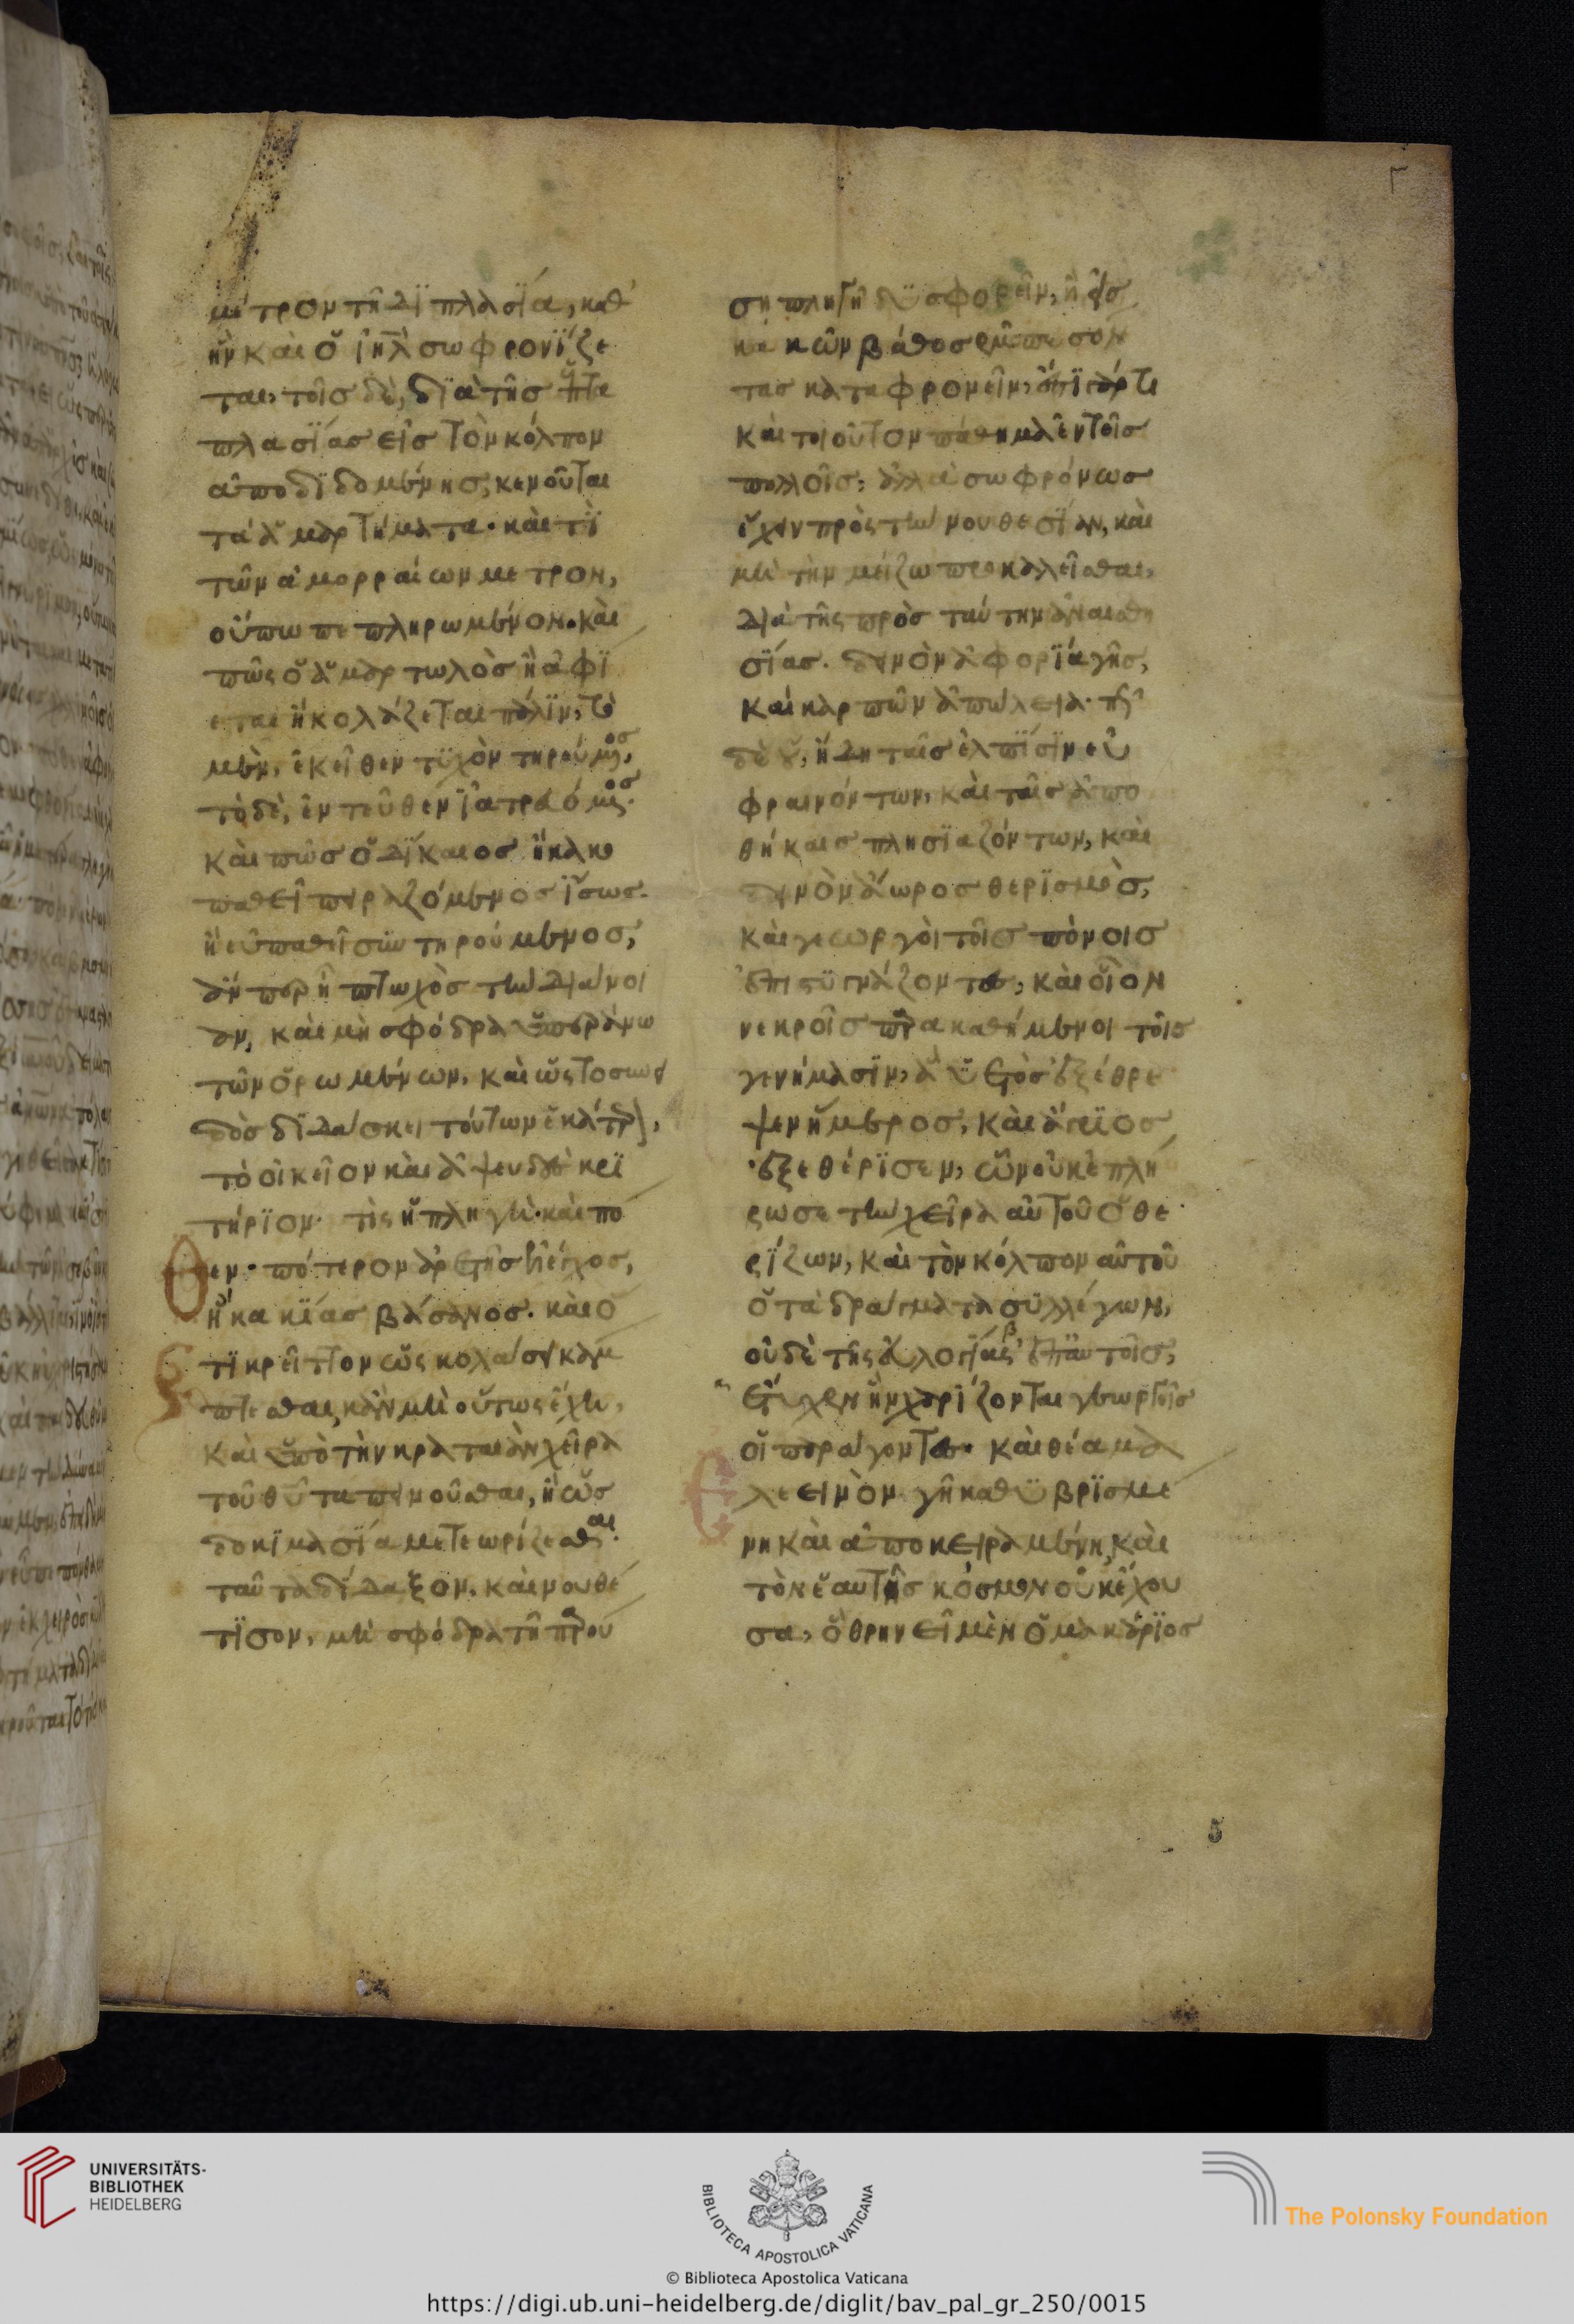 Γ
μέτρον τῆ διπλασία, καθ'
ἣν καὶ ὁ ἰηλ σωφρονίζε
ται, τοῖς δὲ, διὰ τῆς ἑπτα
πλασίας εἰς τὸν κόλπον
ἀποδιδομένης, κενοῦται
τὰ ἁμαρτήματα· καὶ τί
τῶν ἀμορραίων μέτρον,
οὔπω πεπληρωμένον· καὶ
πῶς ὁ ἁμαρτωλὸς ἢ ἀφί
εται ἢ κολάζεται πάλιν, τὸ
μὲν, ἐκεῖθεν τυχὸν τηρούμενος,
τὸ δὲ, ἐντεῦθεν ἰατρευόμενος·
καὶ πῶς ὁ δίκαιος ἢ κακο
παθεῖ πειραζόμενος ἴσως·
ἢ εὐπαθεῖ συντηρούμενος,
ἄν περ ἦ πτωχὸς τὴν διάνοι
αν, καὶ μὴ σφόδρα ὑπεράνω
τῶν ὁρωμένων, καὶ ὡς τὸ συνει
δὸς διδάσκει τούτων ἕκαστα,
τὸ οἰκεῖον καὶ ἀψευδὲς κρι
τήριον· τίς ἡ πληγὴ· καὶ πό
θεν· πότερον ἀρετῆς ἔλεγχος,
ἢ κακίας βάσανος· καὶ ὅ
τι κρεῖττον ὡς κολάσει κάμ
πτεσθαι, κἂν μὴ οὕτως ἔχη,
καὶ ὑπὸ τὴν κραταιὰν χεῖρα
τοῦ θυ ταπεινοῦσθαι, ἢ ὡς
δοκιμασία μετεωρίζεσθαι·
ταῦτα δίδαξον, καὶ νουθέ
τισον, μὴ σφόδρα τῆ παρού
ση πληγῆ δυσφορεῖν, ἢ εἰς
κακῶν βάθος ἐμπεσόν
τας καταφρονεῖν, ἐπεί ἐστί τι
καὶ τοιοῦτον πάθημα ἐν τοῖς
πολλοῖς· ἀλλὰ σωφρόνως
ἔχειν πρὸς τὴν νουθεσίαν, καὶ
μὴ τὴν μείζω προκαλεῖσθαι,
διὰ τῆς πρὸς ταύτην ἀναισθη
σίας. δεινὸν ἀφορία γῆς,
καὶ καρπῶν ἀπώλεια· πῶς
δὲ οὐ, ἤδη ταῖς ἐλπίσιν εὐ
φραινόντων, καὶ ταῖς ἀπο
θήκαις πλησιαζόντων, καὶ
δεινὸν ἄωρος θερισμὸς,
καὶ γεωργοὶ τοῖς πόνοις
ἐπιστυγνάζοντες, καὶ οἷον
νεκροῖς παρακαθήμενοι τοῖς
γενήμασιν, ἃ ὑετὸς ἐξέθρε
ψεν ἥμερος, καὶ ἄγριος
ἐξεθέρισεν, ὧν οὐκ ἐπλή
ρωσε τὴν χεῖρα αὐτοῦ ὁ θε
ρίζων, καὶ τὸν κόλπον αὐτοῦ
ὁ τὰ δράγματα συλλέγων,
οὐδὲ τῆς εὐλογίας ἐπ' αὐτοῖς
ἔτυχεν ἣν χαρίζονται γεωργοῖς
οἱ παράγοντες· καὶ θέαμα
ἐλεεινὸν γῆ καθυβρισμέ
νη καὶ ἀποκειραμένη, καὶ
τὸν ἑαυτῆς κόσμον οὐκ ἔχου
σα, ὃ θρηνεῖ μὲν ὁ μακάριος
5
UNIVERSITÄTS-
BIBLIOTHEK
HEIDELBERG
BIBLIOTECA APOSTOLICA VATICANA
The Polonsky Foundation
© Biblioteca Apostolica Vaticana
https://digi.ub.uni-heidelberg.de/diglit/bav_pal_gr_250/0015